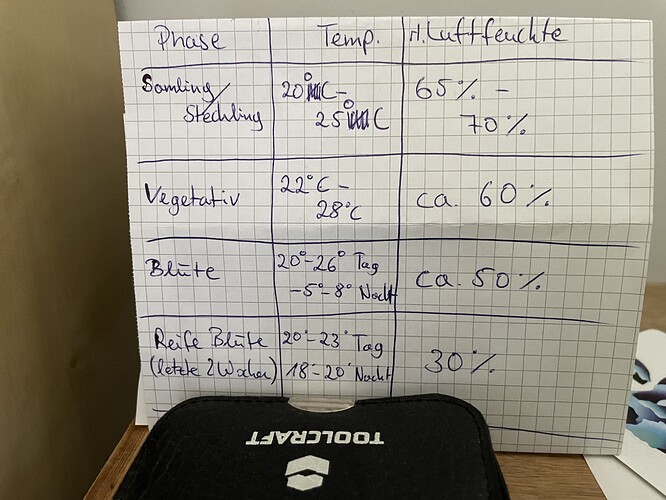 Phase Temp. r. Luftfeuchte
Sämling/ 20°C – 65% –
Steckling 25°C 70%
Vegetativ 22°C – ca. 60%
28°C
Blüte 20°-26° Tag ca. 50%
-5°-8° Nacht
Reife Blüte 20°-23° Tag 30%
(letzte 2 Wochen) 18°-20° Nacht
TOOLCRAFT